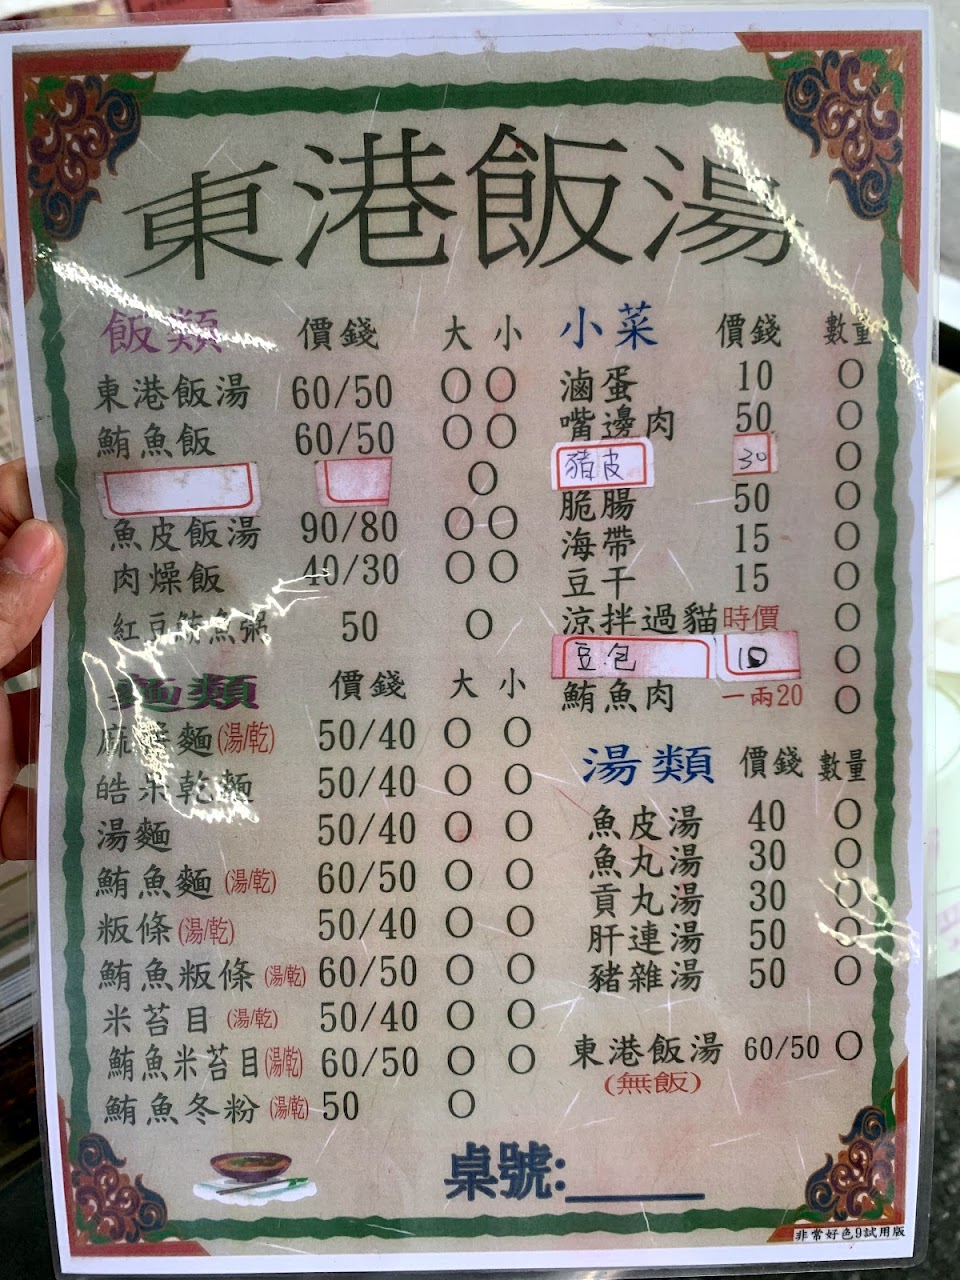 東港飯湯
飯類 價錢 大 小
東港飯湯 60/50 O O
鮪魚飯 60/50 O O
O
魚皮飯湯 90/80 O O
肉燥飯 40/30 O O
紅豆 魚粥 50 O
麵類 價錢 大 小
麻 麵(湯/乾) 50/40 O O
皓 乾麵 50/40 O O
湯麵 50/40 O O
鮪魚麵 (湯/乾) 60/50 O O
粄條(湯/乾) 50/40 O O
鮪魚粄條 (湯/乾) 60/50 O O
米苔目 (湯/乾) 50/40 O O
鮪魚米苔目(湯/乾) 60/50 O O
鮪魚冬粉 (湯/乾) 50 O
小菜 價錢 數量
滷蛋 10 O
嘴邊肉 50 O
豬皮 30 O
脆腸 50 O
海帶 15 O
豆干 15 O
涼拌過貓 時價 O
豆包 10 O
鮪魚肉 一兩20 O
湯類 價錢 數量
魚皮湯 40 O
魚丸湯 30 O
貢丸湯 30 O
肝連湯 50 O
豬雜湯 50 O
東港飯湯 60/50 O
(無飯)
桌號:______
非常好色9試用版